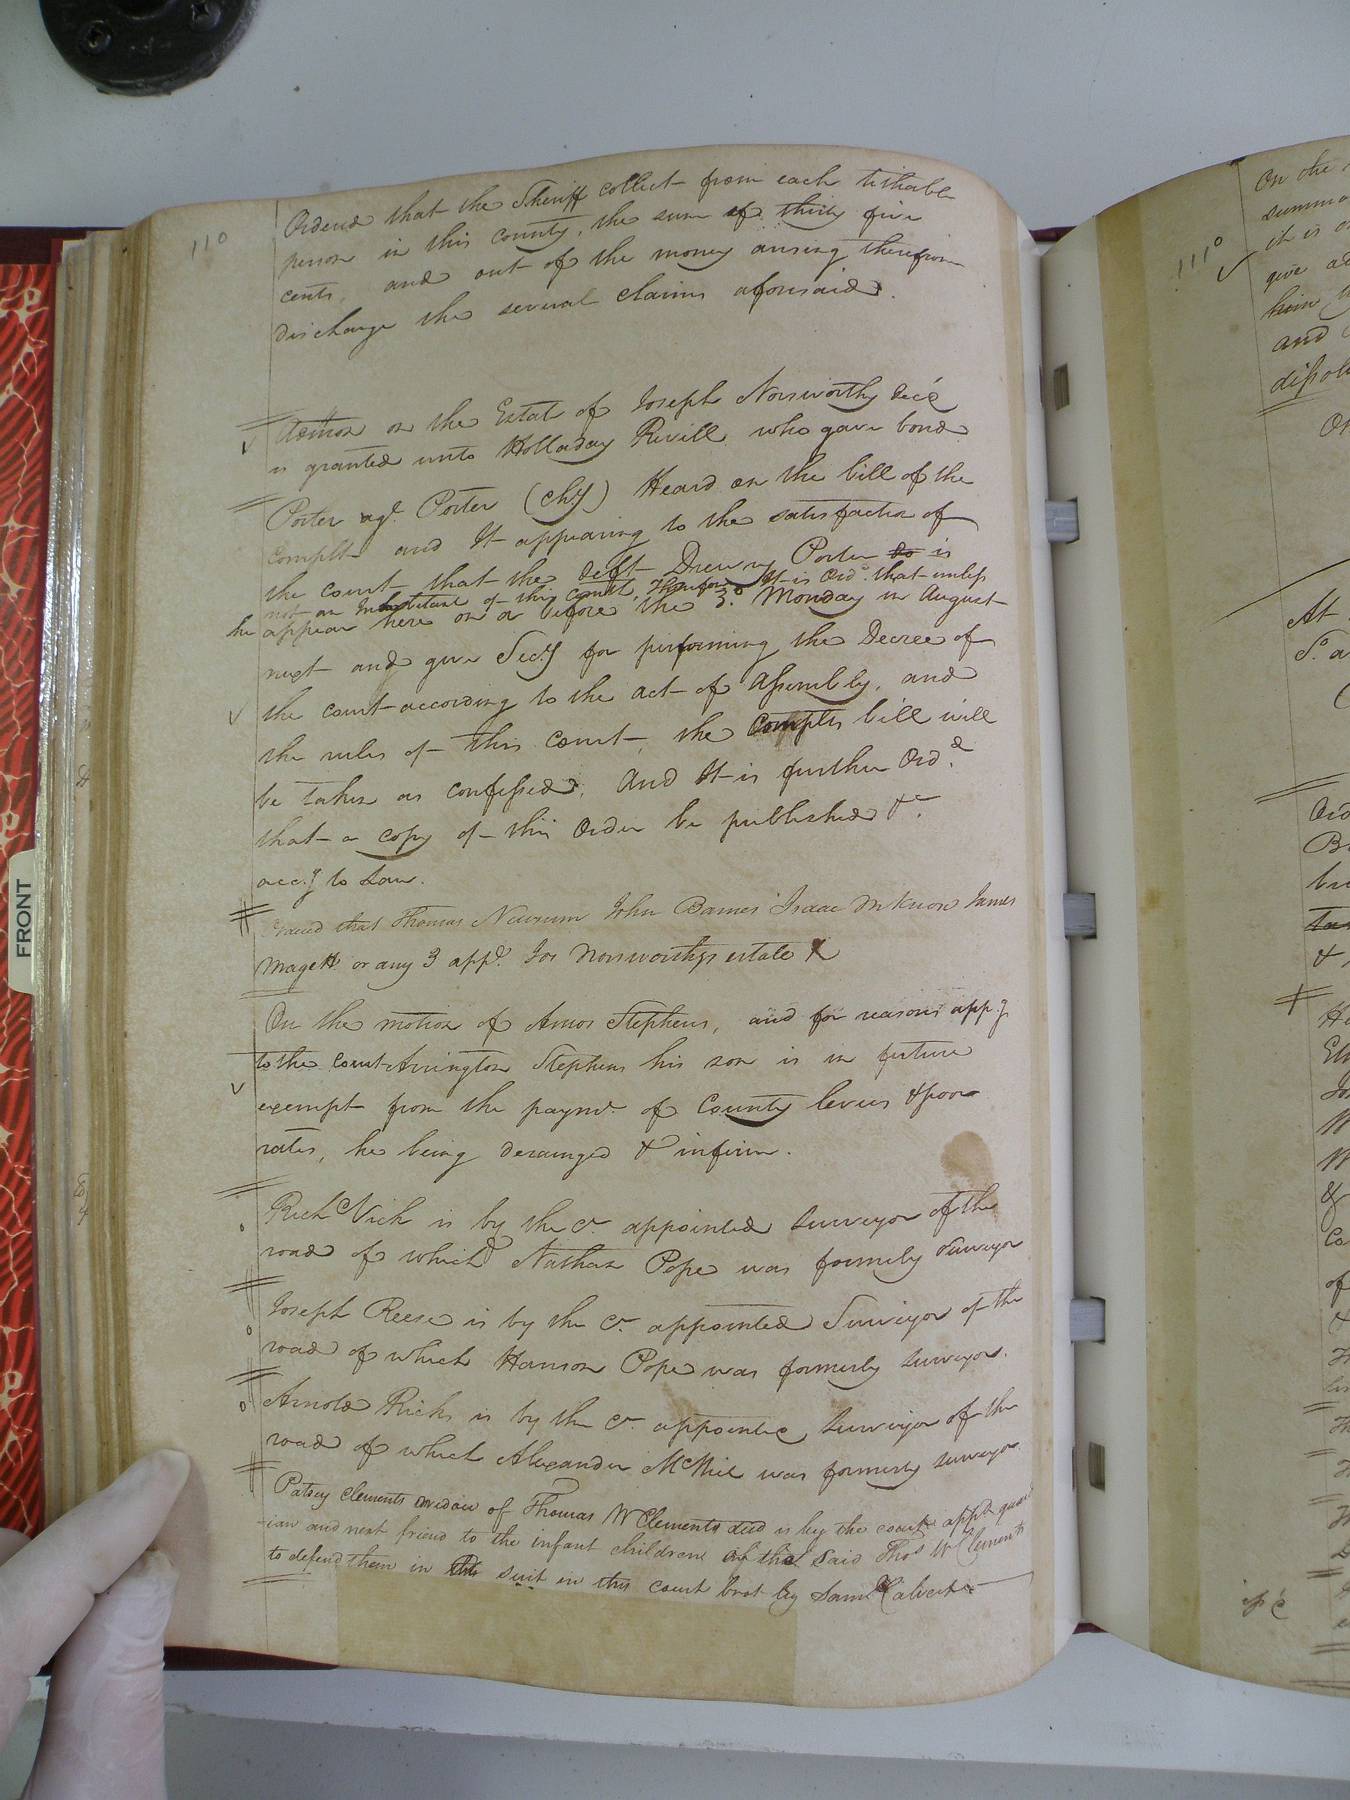 110
Ordered that the Sheriff collect from each tithable
person in this county, the sum of thirty five
cents, and out of the money arising therefrom
discharge the several claims aforesaid.
Admon on the Estate of Joseph Norsworthy dec'd
is granted unto Holladay Revill who gave bond.
Porter agt. Porter (chy) Heard on the bill of the
Complt and It appearing to the satisfaction of
the court that the deft Drewry Porter do is
not an Inhabitant of this Comlt, Therefore It is Ord. that unless
he appear here on or before the 3d. Monday in August
next and give Secy for performing the Decree of
the court according to the act of Assembly, and
the rules of this court, the complts bill will
be taken as confessed, And It is further Ord.d
that a copy of this Order be published &c.
accg to Law.
Ordered that Thomas Newsum John Barnes Isaac McKnow James
Magett or any 3 appd. Jos Norsworthys estate
On the motion of Amos Stephens, and for reasons appg
to the Court Arrington Stephens his son is in future
exempt from the paymt of County levies & poor
rates, he being deranged & infirm.
Richd Vick is by the Ct appointed Surveyor of the
road of which Nathan Pope was formerly Surveyor
Joseph Reese is by the Ct. appointed Surveyor of the
road of which Hanson Pope was formerly surveyor.
Arnold Ricks is by the Ct appointed Surveyor of the
road of which Alexander McNiel was formerly surveyor
Patsey Clements widow of Thomas W Clements decd is by the court appt guard
-ian and next friend to the infant children of the said Thos W Clements
to defend them in the suit in this court brot by Saml Calvert
FRONT
111
On the
summo
it is o
give a
him
and
disso
Or
At
So. a
Ord
B
of